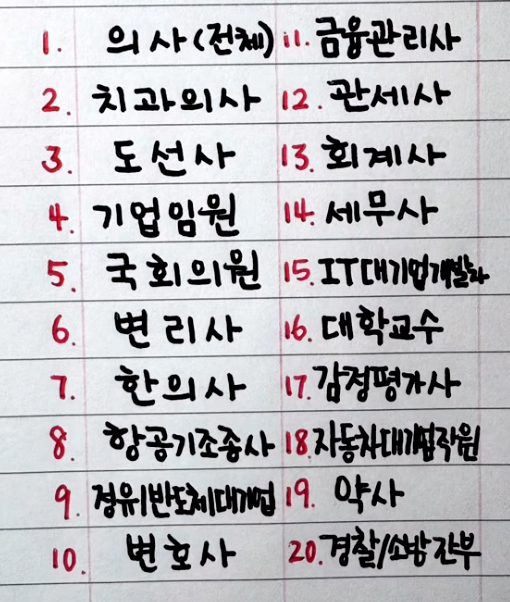 1. 의사(전체)
2. 치과의사
3. 도선사
4. 기업임원
5. 국회의원
6. 변리사
7. 한의사
8. 항공기조종사
9. 정유/반도체대기업
10. 변호사
11. 금융관리사
12. 관세사
13. 회계사
14. 세무사
15. IT대기업개발자
16. 대학교수
17. 감정평가사
18. 자동차대기업직원
19. 약사
20. 경찰/소방간부